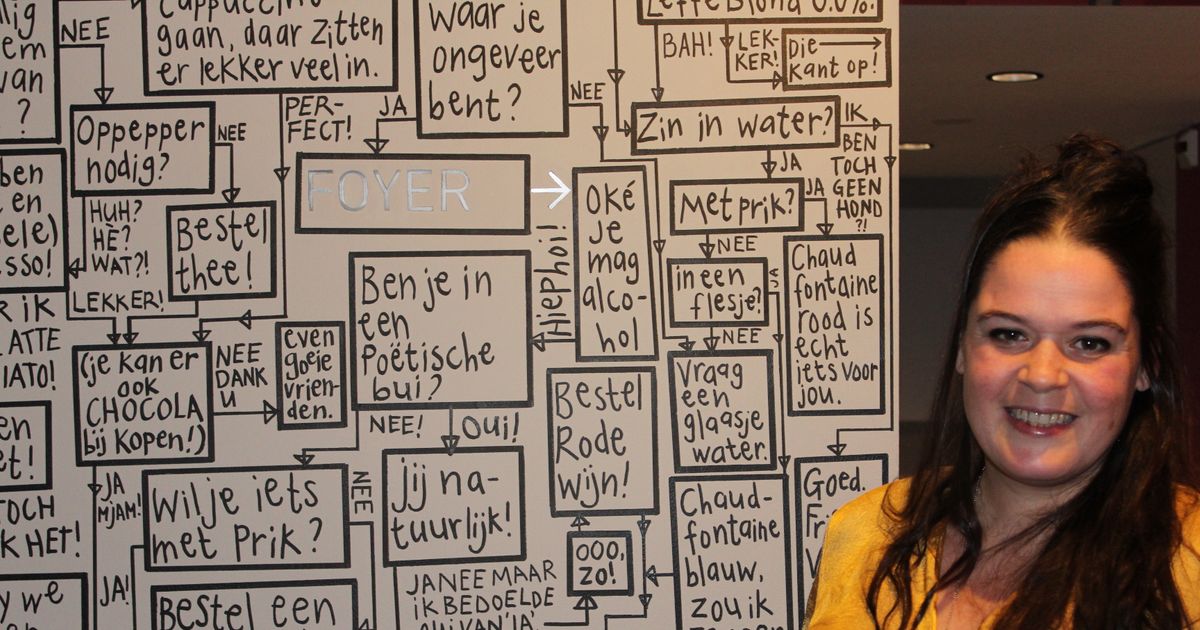 lig
em
van
?
NEE
cappuccino
gaan, daar zitten
er lekker veel in.
waar je
ongeveer
bent?
Leffe Blond 0.0%.
BAH!
LEK-
KER!
Die
kant op!
Oppepper
nodig?
NEE
PER-
FECT!
JA
NEE
Zin in water?
IK
BEN
TOCH
GEEN
HOND
?!
FOYER
JA
Met prik?
JA
ben
en
ele)
sso!
HUH?
HÈ?
WAT?!
Bestel
thee!
LEKKER!
Oké
je
mag
alco-
hol
Hiephoi!
NEE
in een
flesje?
JA
NEE
Chaud
fontaine
rood is
echt
iets voor
jou.
R IK
ATTE
IATO!
Ben je in
een
Poëtische
bui?
(je kan er
ook
CHOCOLA
bij kopen!)
NEE
DANK
U
even
goeie
vrien-
den.
NEE!
OUI!
Bestel
Rode
wijn!
Vraag
een
glaasje
water.
en
et!
TOCH
K HET!
JA
MJAM!
Wil je iets
met Prik?
NEE
Jij na-
tuurlijk!
OOO,
ZO!
Chaud-
fontaine
blauw,
zou ik
Goed.
JA!
Bestel een
JA NEE MAAR
IK BEDOELDE
OUI VAN 'JA
y we